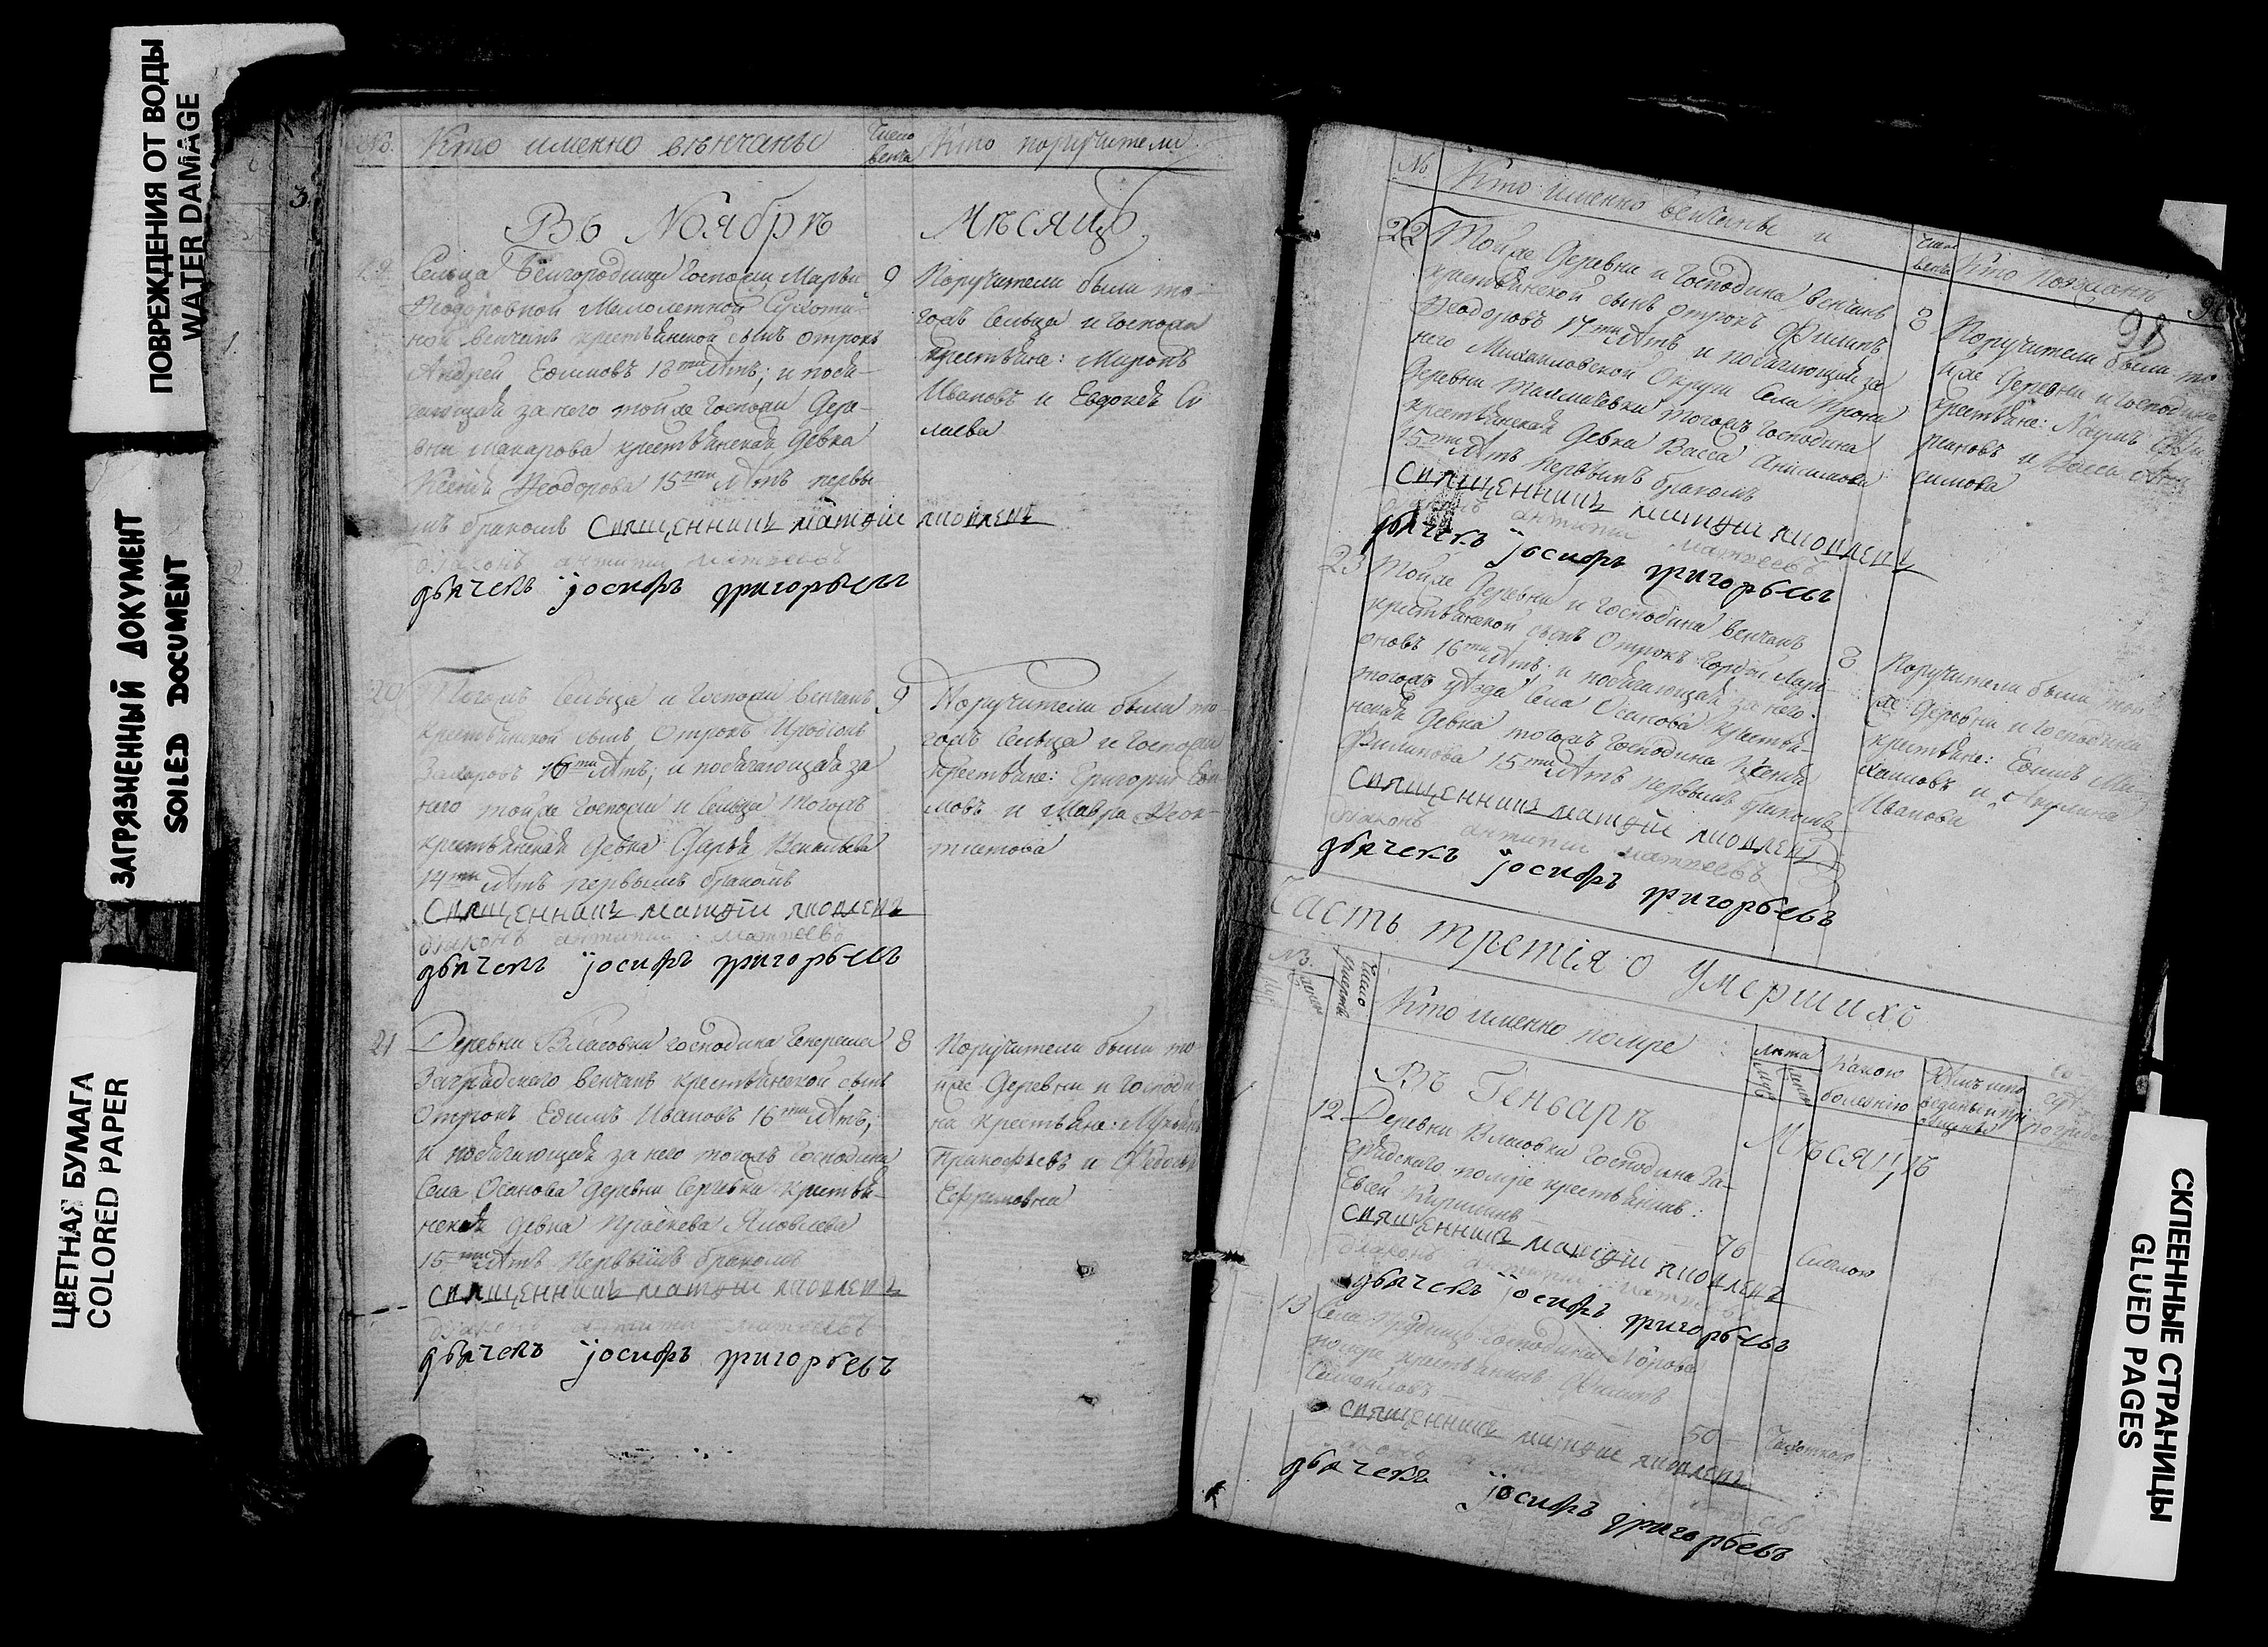 ПОВРЕЖДЕНИЯ ОТ ВОДЫ
WATER DAMAGE
ЗАГРЯЗНЕННЫЙ ДОКУМЕНТ
SOILED DOCUMENT
ЦВЕТНАЯ БУМАГА
COLORED PAPER
№ Кто именно вѣнчаны Число венча Кто поручители
Въ Ноябрѣ Мѣсяцѣ
Сельца Госпожи Марьи 9
Феодоровной Малолетной
ной венчанъ крестьянской сынъ отрокъ
Андрей Ефимовъ 18ти лѣтъ; и посяг-
ающая за него тойже Госпожи Дере-
вни Макарова крестьянская девка
Ксенія Феодорова 15ти лѣтъ первы
мъ бракомъ Священникъ матфій яковлевъ
діаконъ антипа матвеевъ
дьячекъ іосифъ григорьевъ
Поручители были то-
гожъ Сельца и Госпожи
крестьяне: Миронъ
Ивановъ и Евдокея
20 Тогожъ Сельца и Госпожи венчанъ 9
крестьянской сынъ Отрокъ Иродіонъ
Захаровъ 16ти лѣтъ; и посягающая за
него тойже Госпожи и Сельца тогожъ
крестьянская девка Дарья Васильева
14ти лѣтъ первымъ бракомъ
Священникъ матфій яковлевъ
діаконъ антипа матвеевъ
дьячекъ іосифъ григорьевъ
Поручители были то-
гожъ Сельца и Госпожи
крестьяне: Григорій Ефи
мовъ и Мавра Феок-
тистова
21 Деревни Власовки господина Генерала 8
Заградского венчанъ крестьянской сынъ
Отрокъ Ефимъ Ивановъ 16ти лѣтъ;
и посягающая за него тогожъ Господина
Села Осанова деревни Сергевки крестья-
нская девка Праскева Яковлева
15ти лѣтъ первымъ бракомъ
священникъ матфій яковлевъ
діаконъ антипа матвеевъ
дьячекъ іосифъ григорьевъ
Поручители были то-
йже Деревни и Господи
на крестьяне:
Прокофьевъ и Федосья
Ефримовна
№ Кто именно венчаны и Число венча Кто
98
22 Тойже Деревни и Господина венчанъ 8
крестьянской сынъ отрокъ Филипъ
Феодоровъ 17ти лѣтъ и посягающая за
него Михаиловской Округи Села
Деревни тогожъ Господина
крестьянская девка Васса Анисимова
15ти лѣтъ первымъ бракомъ
священникъ матфій яковлевъ
антипа матвеевъ
дьячекъ іосифъ григорьевъ
Поручители были то
йже Деревни и Господина
крестьяне: Наумъ
и
симова
23 Тойже Деревни и Господина венчанъ 8
крестьянской сынъ Отрокъ Гордей Лари-
оновъ 16ти лѣтъ и посягающая за него
тогожъ уѣзда Села Осанова крестья-
нская девка тогожъ Господина Ксенія
Филипова 15ти лѣтъ первымъ бракомъ
священникъ матфій яковлевъ
діаконъ антипа матвеевъ
дьячекъ іосифъ григорьевъ
Поручители были той
же Деревни и Господина
крестьяне: Ефимъ Ми-
хаиловъ и Акулина
Иванова
Часть третія о Умершихъ
№ Число Кто именно помре Лѣта Какою болезнію
Въ Генварѣ Мѣсяцѣ
12 Деревни Власовки Господина За-
градского помре крестьянинъ:
Евсей Кирилинъ 70
священникъ матфій яковлевъ
діаконъ антипа матвеевъ
дьячекъ іосифъ григорьевъ
13 Села Господина
помре крестьянинъ Филипъ
Самойловъ 50 Чахоткою
священникъ матфій яковлевъ
дьячекъ іосифъ григорьевъ
СКЛЕЕННЫЕ СТРАНИЦЫ
GLUED PAGES